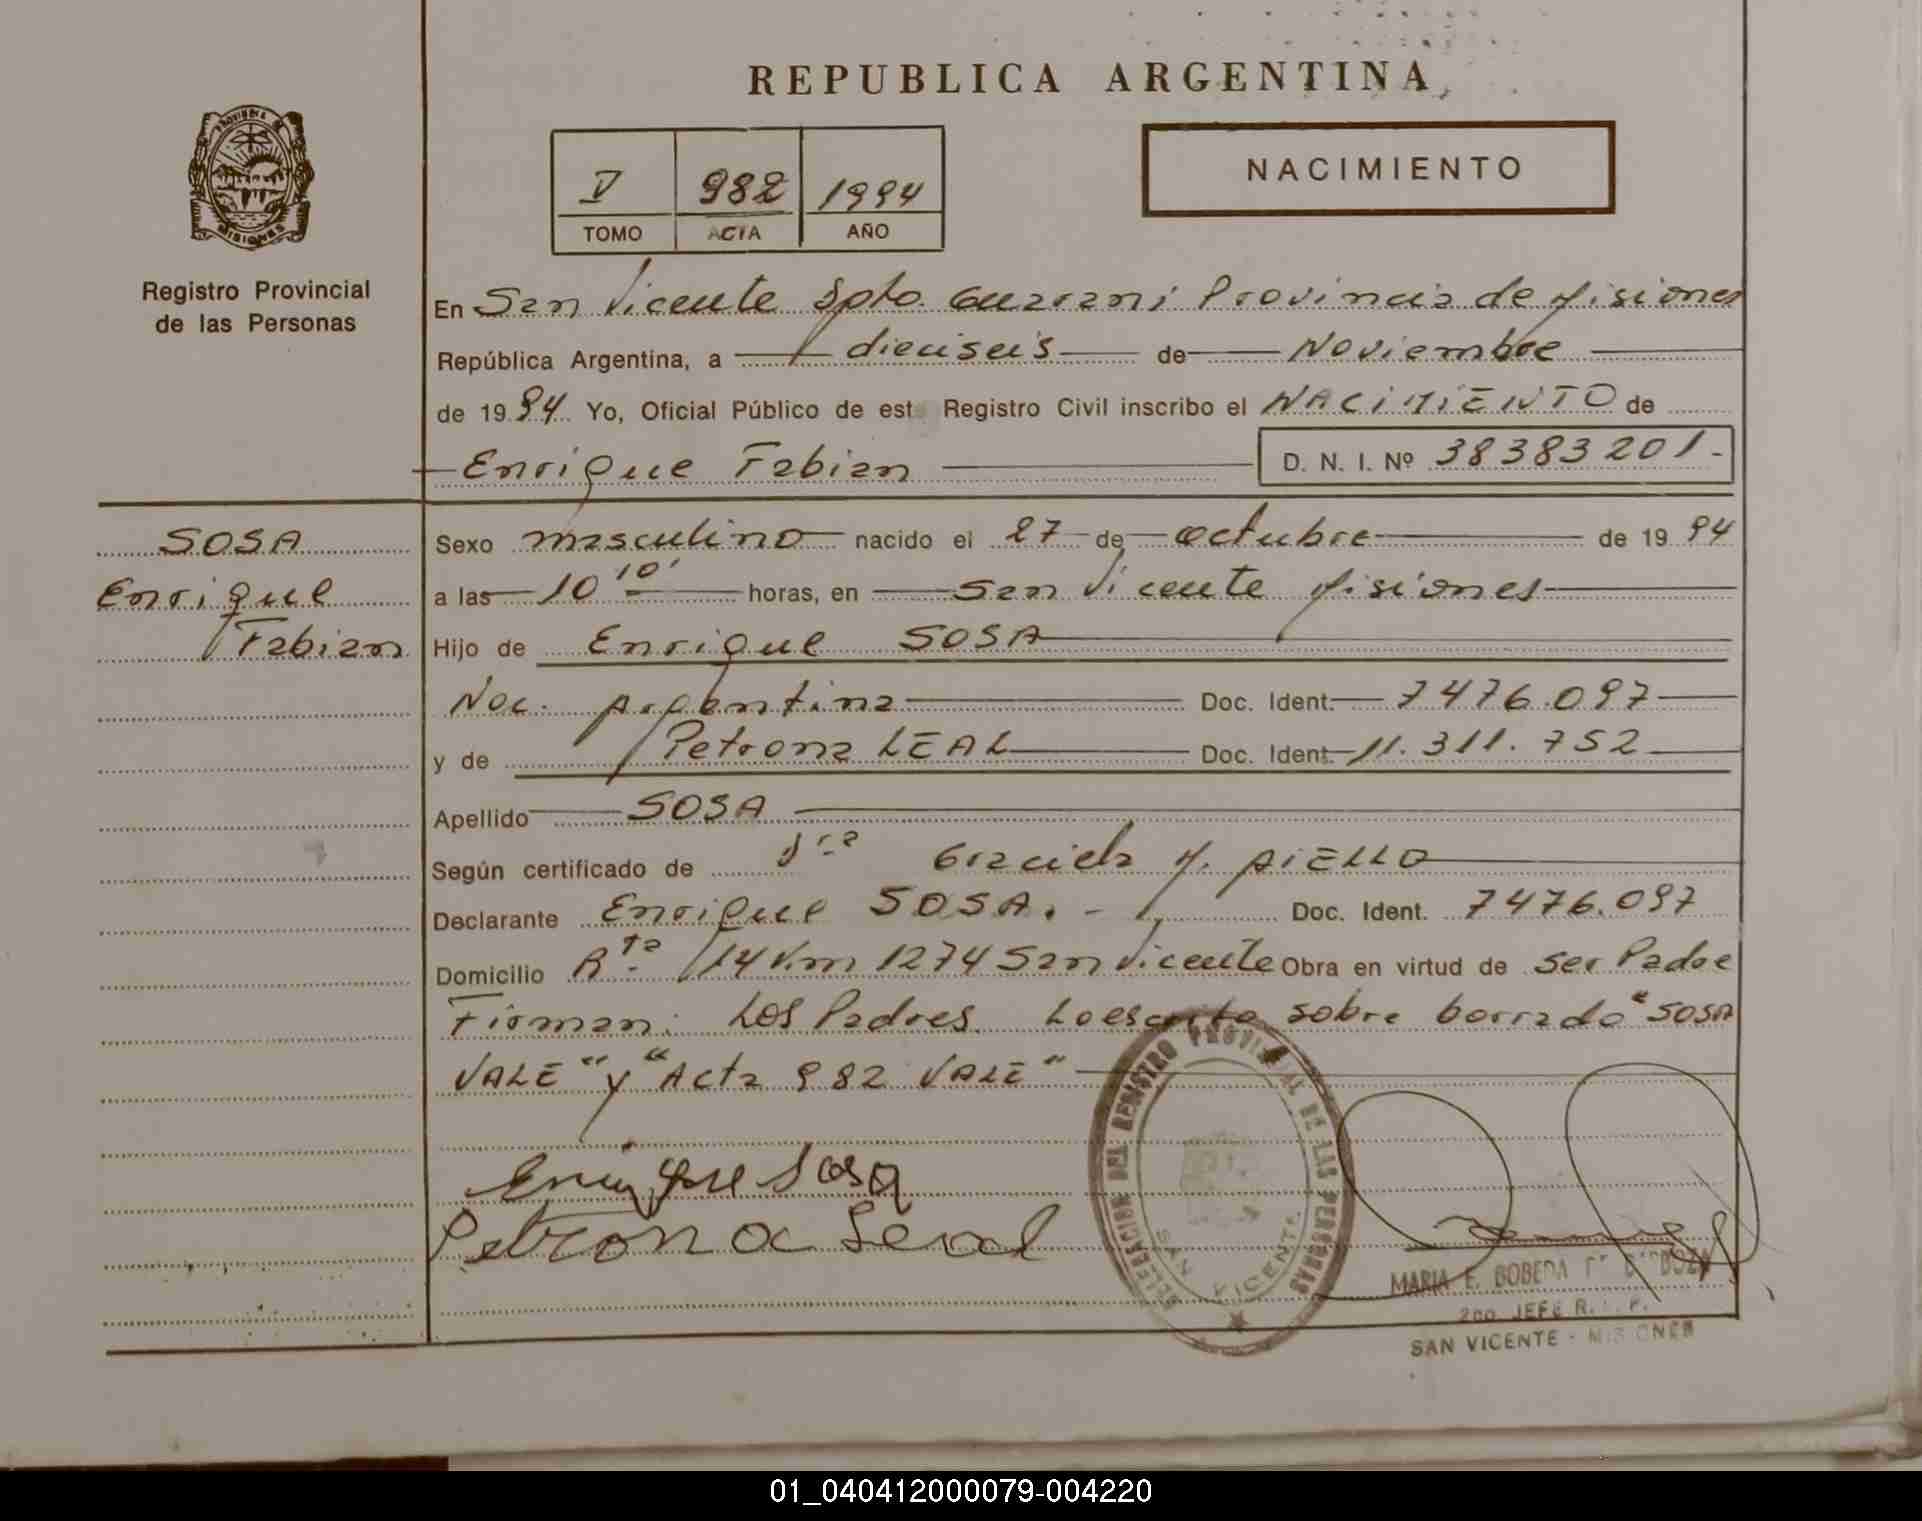 REPUBLICA ARGENTINA
PROVINCIA DE
MISIONES
Registro Provincial
de las Personas
V 982 1994
TOMO ACTA AÑO
NACIMIENTO
En San Vicente Dpto. Guarani Provincia de Misiones
República Argentina, a dieciseis de Noviembre
de 1994 Yo, Oficial Público de este Registro Civil inscribo el NACIMIENTO de
Enrique Fabian D. N. I. Nº 38383201.-
SOSA
Enrique
Fabian
Sexo masculino nacido el 27 de octubre de 1994
a las 10 10' horas, en San Vicente Misiones
Hijo de Enrique SOSA
Nac. Argentina Doc. Ident. 7476.097
y de Petrona LEAL Doc. Ident. 11.311.752
Apellido SOSA
Según certificado de Graciela M. AIELLO
Declarante Enrique SOSA.- Doc. Ident. 7476.097
Domicilio Rta 14 Km 1274 San Vicente Obra en virtud de ser Padre
Firman: Los Padres. Lo escrito sobre borrado "SOSA
VALE" y "Acta 982 VALE"
Enrique Sosa
Petrona Leal
DELEGACION DEL REGISTRO PROVINCIAL DE LAS PERSONAS
SAN VICENTE
MARIA E. BOBEDA DE BARBOZA
2do. JEFE R. P.
SAN VICENTE - MISIONES
01_040412000079-004220